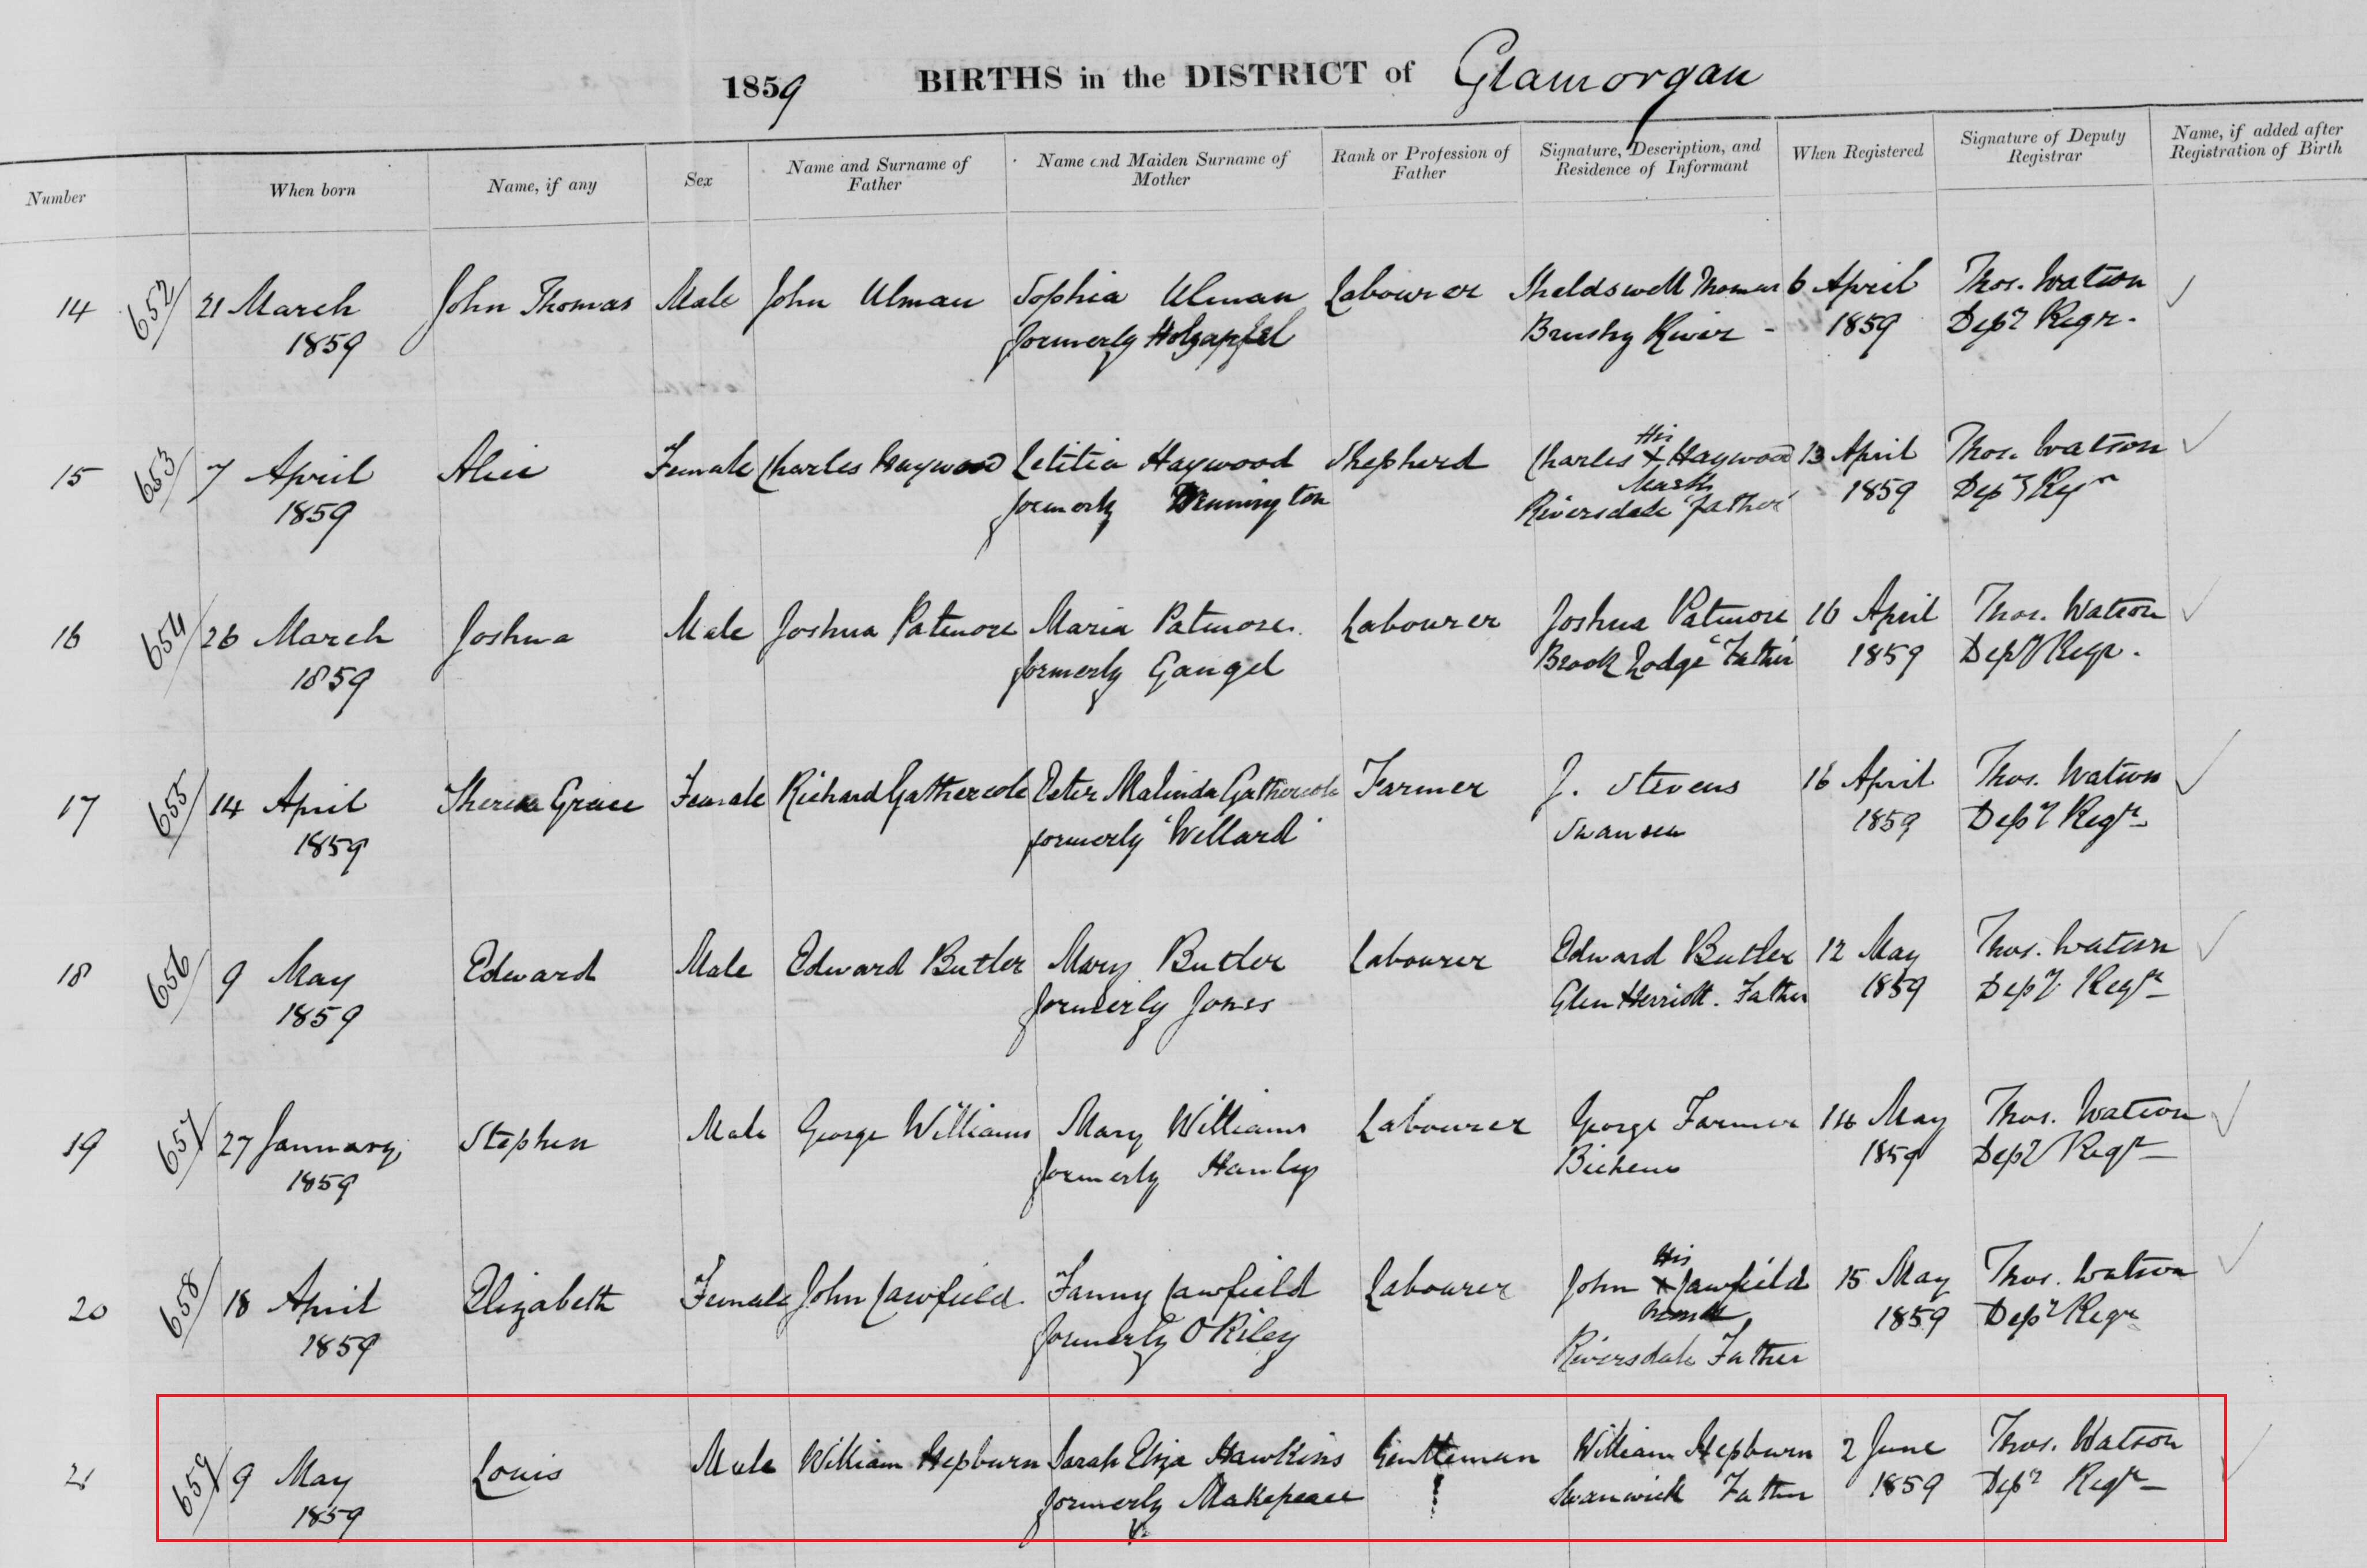 1859 BIRTHS in the DISTRICT of Glamorgan
Number When born Name, if any Sex Name and Surname of Father Name and Maiden Surname of Mother Rank or Profession of Father Signature, Description, and Residence of Informant When Registered Signature of Deputy Registrar Name, if added after Registration of Birth
14 652 21 March John Thomas Male John Ulman Sophia Ulman Labourer Sheldswell Thomas 6 April Thos. Watson
1859 formerly Holzapfel Brushy River - 1859 Depy Regr.
His
15 653 7 April Alice Female Charles Haywood Letitia Haywood Shepherd Charles X Haywood 13 April Thos. Watson
Mark
1859 formerly Riversdale Father 1859 Depy Regr
16 654 26 March Joshua Male Joshua Patmore Maria Patmore. Labourer Joshua Patmore 16 April Thos. Watson
1859 formerly Gangel Brook Lodge "Father" 1859 Depy Regr.
17 655 14 April Grace Female Richard Gathercole Ester Malinda Gathercole Farmer J. Stevens 16 April Thos. Watson
1859 formerly 'Wellard' Swansea 1859 Depy Regr
18 656 9 May Edward Male Edward Butler Mary Butler Labourer Edward Butler 12 May Thos. Watson
1859 formerly Jones Glen Herriott. Father 1859 Depy Regr
19 657 27 January Stephen Male George Williams Mary Williams Labourer George Farmer 14 May Thos. Watson
1859 formerly Hanley Bicheno 1859 Depy Regr
His
20 658 18 April Elizabeth Female John Cawfield Fanny Cawfield Labourer John X Cawfield 15 May Thos. Watson
Mark
1859 formerly O'Riley Riversdale Father 1859 Depy Regr
21 659 9 May Louis Male William Hepburn Sarah Eliza Hawkins Gentleman William Hepburn 2 June Thos. Watson
1859 formerly Makepeace Swanwick Father 1859 Depy Regr